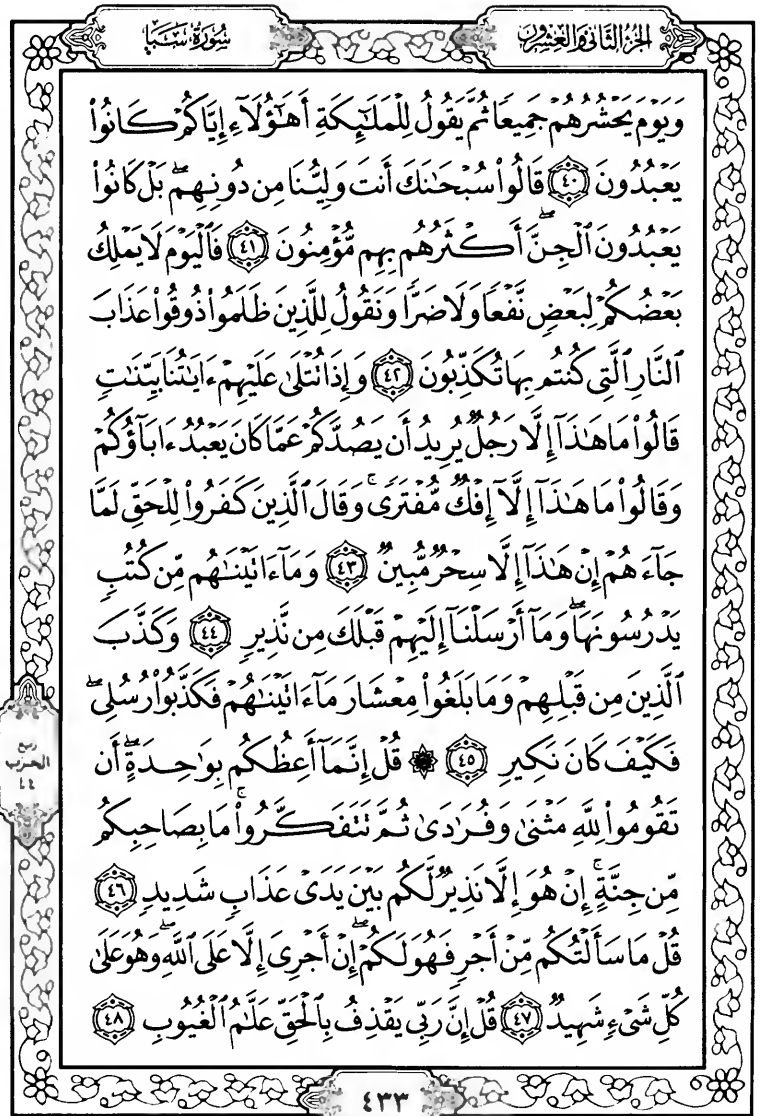 الجزء الثاني والعشرون
سورة سبأ
وَيَوْمَ يَحْشُرُهُمْ جَمِيعًا ثُمَّ يَقُولُ لِلْمَلَٰٓئِكَةِ أَهَٰٓؤُلَآءِ إِيَّاكُمْ كَانُوا۟
يَعْبُدُونَ ﴿٤٠﴾ قَالُوا۟ سُبْحَٰنَكَ أَنتَ وَلِيُّنَا مِن دُونِهِم ۖ بَلْ كَانُوا۟
يَعْبُدُونَ ٱلْجِنَّ ۖ أَكْثَرُهُم بِهِم مُّؤْمِنُونَ ﴿٤١﴾ فَٱلْيَوْمَ لَا يَمْلِكُ
بَعْضُكُمْ لِبَعْضٍ نَّفْعًا وَلَا ضَرًّا وَنَقُولُ لِلَّذِينَ ظَلَمُوا۟ ذُوقُوا۟ عَذَابَ
ٱلنَّارِ ٱلَّتِى كُنتُم بِهَا تُكَذِّبُونَ ﴿٤٢﴾ وَإِذَا تُتْلَىٰ عَلَيْهِمْ ءَايَٰتُنَا بَيِّنَٰتٍ
قَالُوا۟ مَا هَٰذَآ إِلَّا رَجُلٌ يُرِيدُ أَن يَصُدَّكُمْ عَمَّا كَانَ يَعْبُدُ ءَابَآؤُكُمْ
وَقَالُوا۟ مَا هَٰذَآ إِلَّآ إِفْكٌ مُّفْتَرًى ۚ وَقَالَ ٱلَّذِينَ كَفَرُوا۟ لِلْحَقِّ لَمَّا
جَآءَهُمْ إِنْ هَٰذَآ إِلَّا سِحْرٌ مُّبِينٌ ﴿٤٣﴾ وَمَآ ءَاتَيْنَٰهُم مِّن كُتُبٍ
يَدْرُسُونَهَا ۖ وَمَآ أَرْسَلْنَآ إِلَيْهِمْ قَبْلَكَ مِن نَّذِيرٍ ﴿٤٤﴾ وَكَذَّبَ
ٱلَّذِينَ مِن قَبْلِهِمْ وَمَا بَلَغُوا۟ مِعْشَارَ مَآ ءَاتَيْنَٰهُمْ فَكَذَّبُوا۟ رُسُلِى ۖ
فَكَيْفَ كَانَ نَكِيرِ ﴿٤٥﴾ ۞ قُلْ إِنَّمَآ أَعِظُكُم بِوَٰحِدَةٍ ۖ أَن
تَقُومُوا۟ لِلَّهِ مَثْنَىٰ وَفُرَٰدَىٰ ثُمَّ تَتَفَكَّرُوا۟ ۚ مَا بِصَاحِبِكُم
مِّن جِنَّةٍ ۚ إِنْ هُوَ إِلَّا نَذِيرٌ لَّكُم بَيْنَ يَدَىْ عَذَابٍ شَدِيدٍ ﴿٤٦﴾
قُلْ مَا سَأَلْتُكُم مِّنْ أَجْرٍ فَهُوَ لَكُمْ ۖ إِنْ أَجْرِىَ إِلَّا عَلَى ٱللَّهِ ۖ وَهُوَ عَلَىٰ
كُلِّ شَىْءٍ شَهِيدٌ ﴿٤٧﴾ قُلْ إِنَّ رَبِّى يَقْذِفُ بِٱلْحَقِّ عَلَّٰمُ ٱلْغُيُوبِ ﴿٤٨﴾
ربع
الحزب
٤٤
٤٣٣